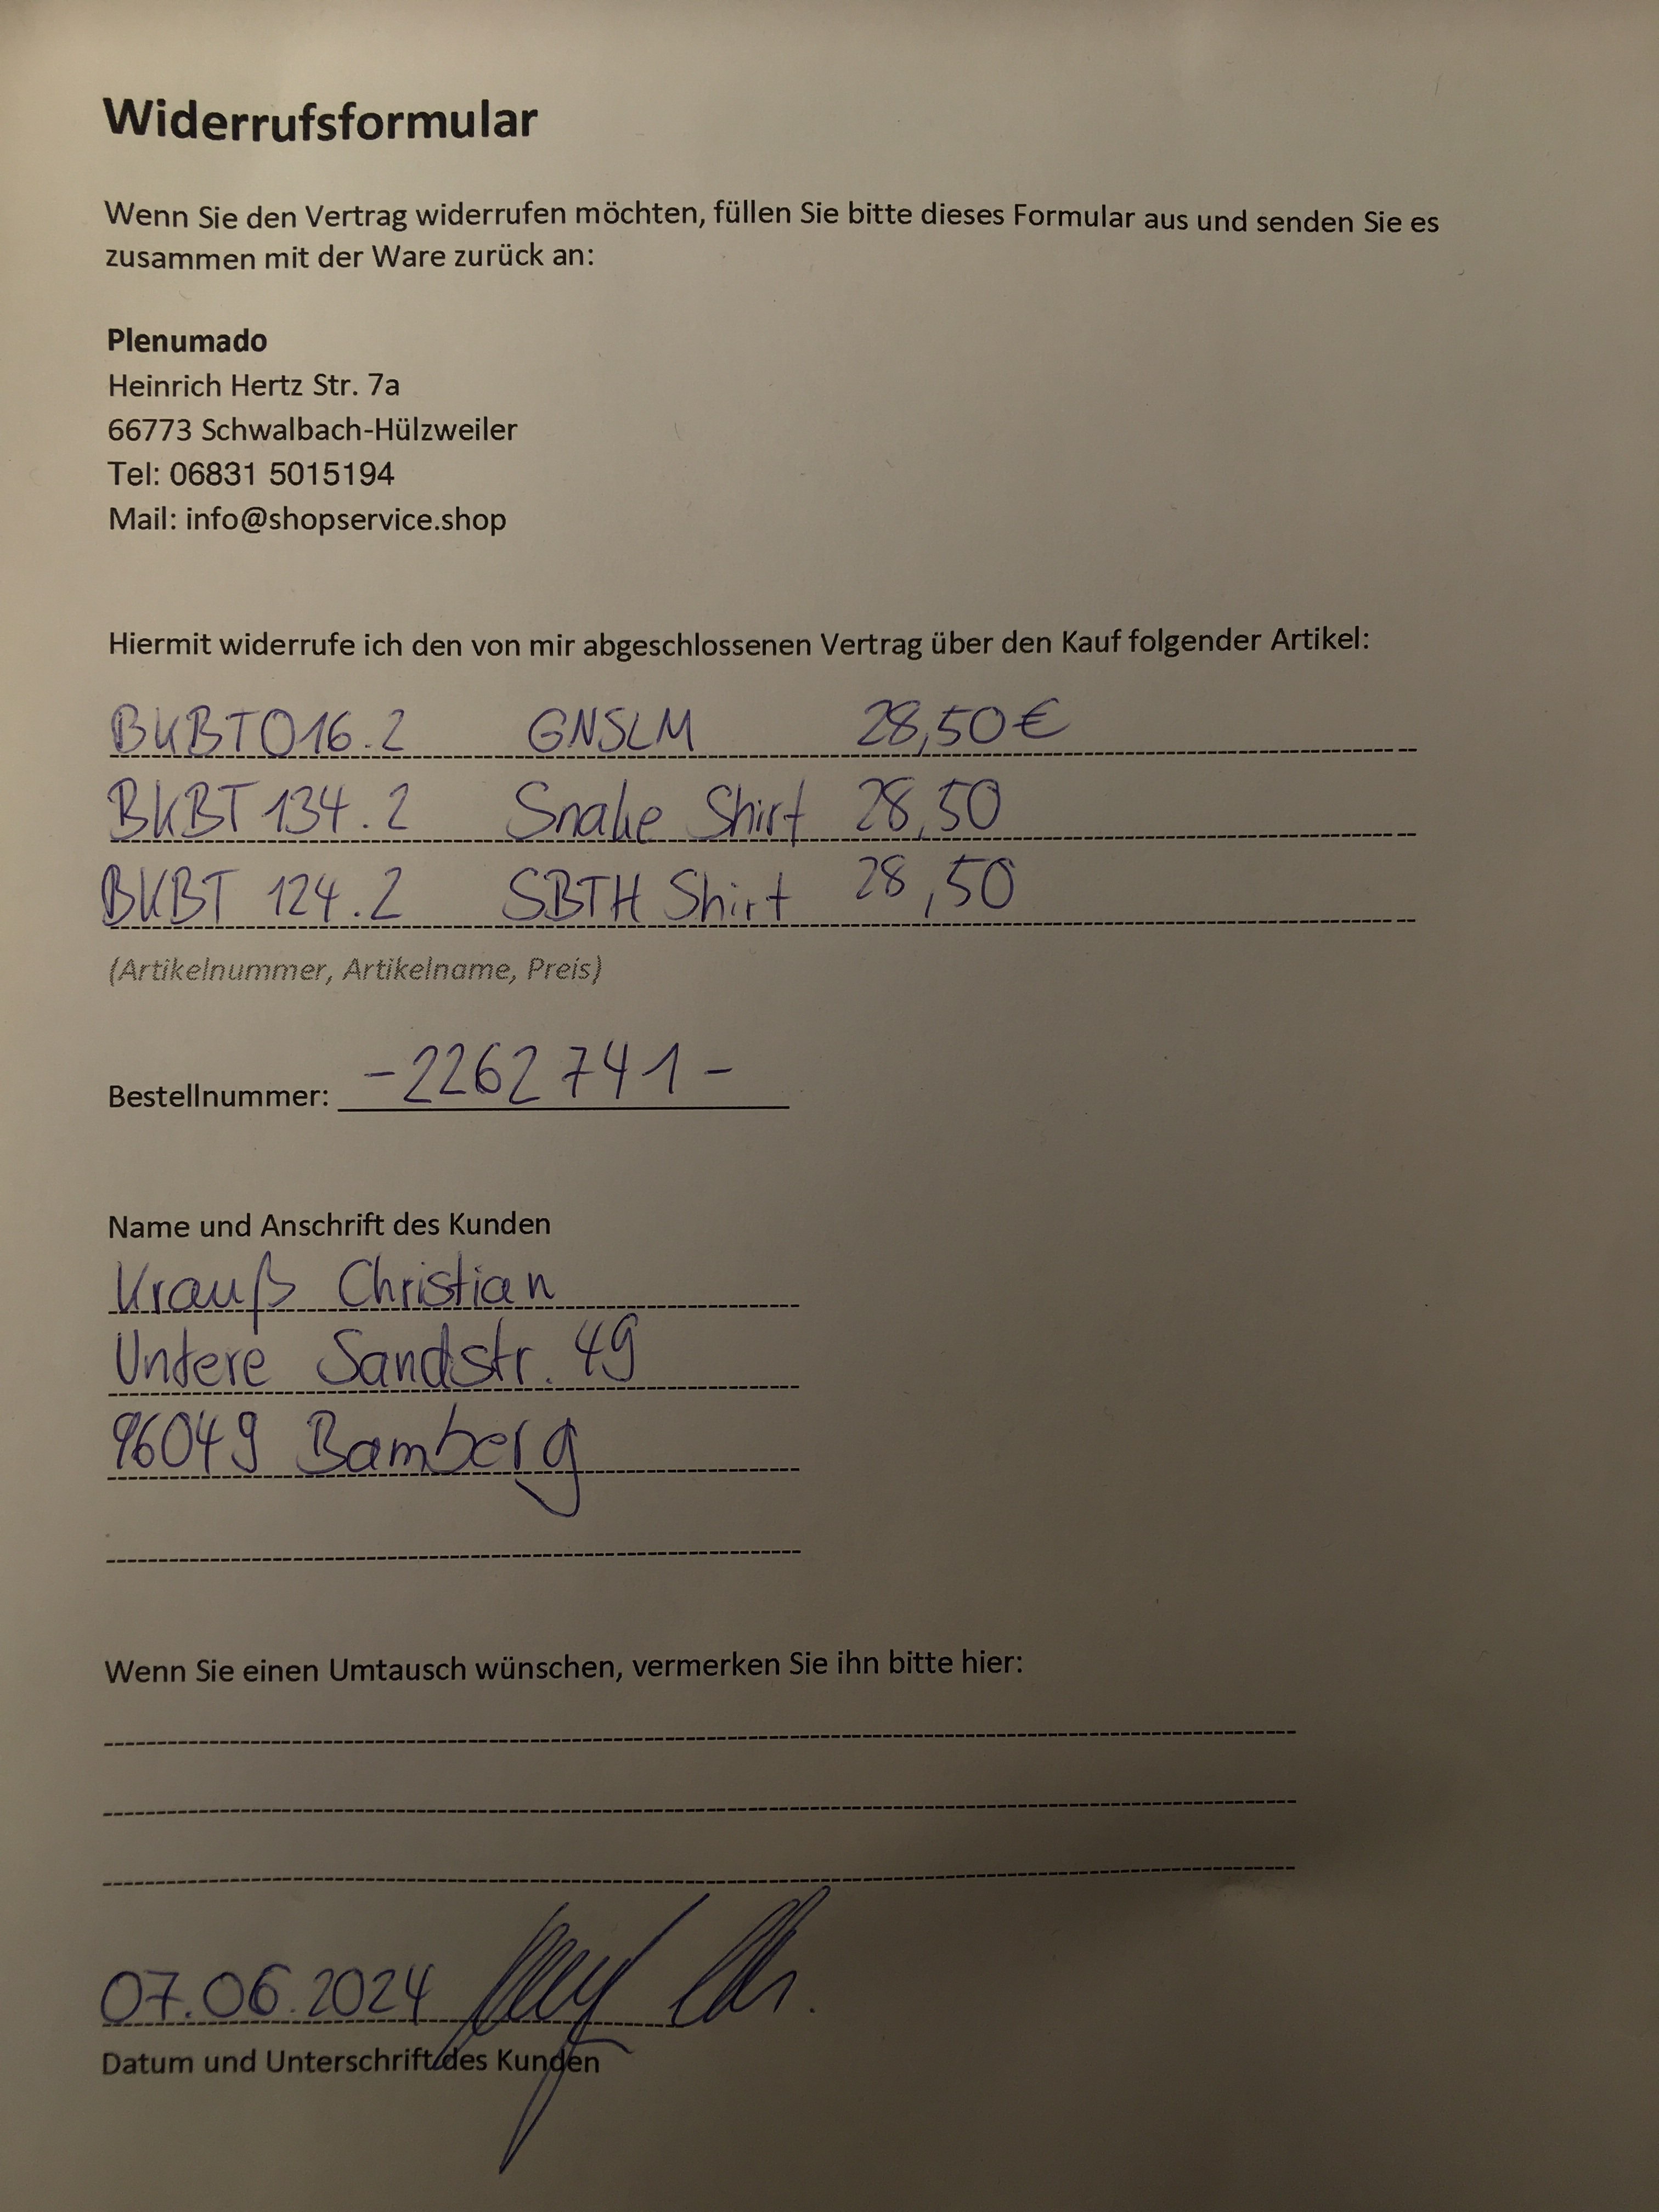 Widerrufsformular
Wenn Sie den Vertrag widerrufen möchten, füllen Sie bitte dieses Formular aus und senden Sie es
zusammen mit der Ware zurück an:
Plenumado
Heinrich Hertz Str. 7a
66773 Schwalbach-Hülzweiler
Tel: 06831 5015194
Mail: info@shopservice.shop
Hiermit widerrufe ich den von mir abgeschlossenen Vertrag über den Kauf folgender Artikel:
BKBT016.2 GNSLM 28,50€
BKBT 134.2 Snake Shirt 28,50
BKBT 124.2 SBTH Shirt 28,50
(Artikelnummer, Artikelname, Preis)
Bestellnummer: -2262741-
Name und Anschrift des Kunden
Krauß Christian
Untere Sandstr. 49
96049 Bamberg
Wenn Sie einen Umtausch wünschen, vermerken Sie ihn bitte hier:
07.06.2024
Datum und Unterschrift des Kunden